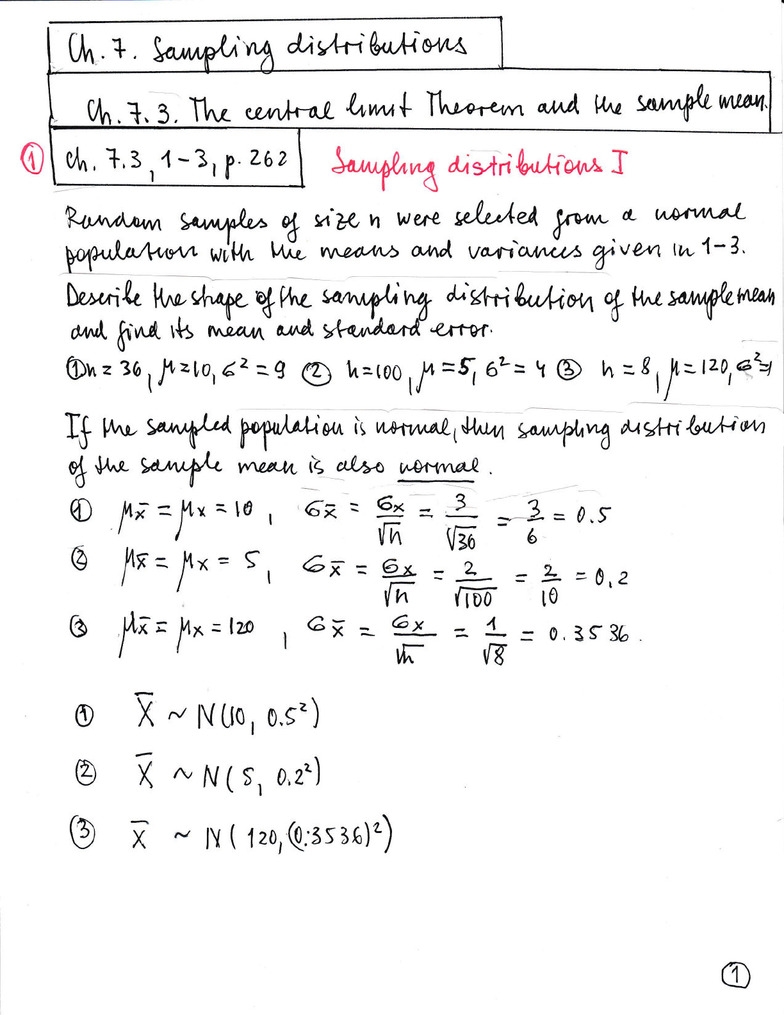 Ch. 7. Sampling distributions
Ch. 7.3. The central limit Theorem and the sample mean.
① Ch. 7.3, 1-3, p. 262 Sampling distributions I
Random samples of size n were selected from a normal
population with the means and variances given in 1-3.
Describe the shape of the sampling distribution of the sample mean
and find its mean and standard error.
① n = 36, μ = 10, σ² = 9 ② n = 100, μ = 5, σ² = 4 ③ n = 8, μ = 120, σ² = 1
If the sampled population is normal, then sampling distribution
of the sample mean is also normal.
① μx̄ = μx = 10, σx̄ = σx/√n = 3/√36 = 3/6 = 0.5
② μx̄ = μx = 5, σx̄ = σx/√n = 2/√100 = 2/10 = 0,2
③ μx̄ = μx = 120, σx̄ = σx/√n = 1/√8 = 0.3536.
① X̄ ~ N(10, 0.5²)
② X̄ ~ N(5, 0.2²)
③ X̄ ~ N(120, (0.3536)²)
①